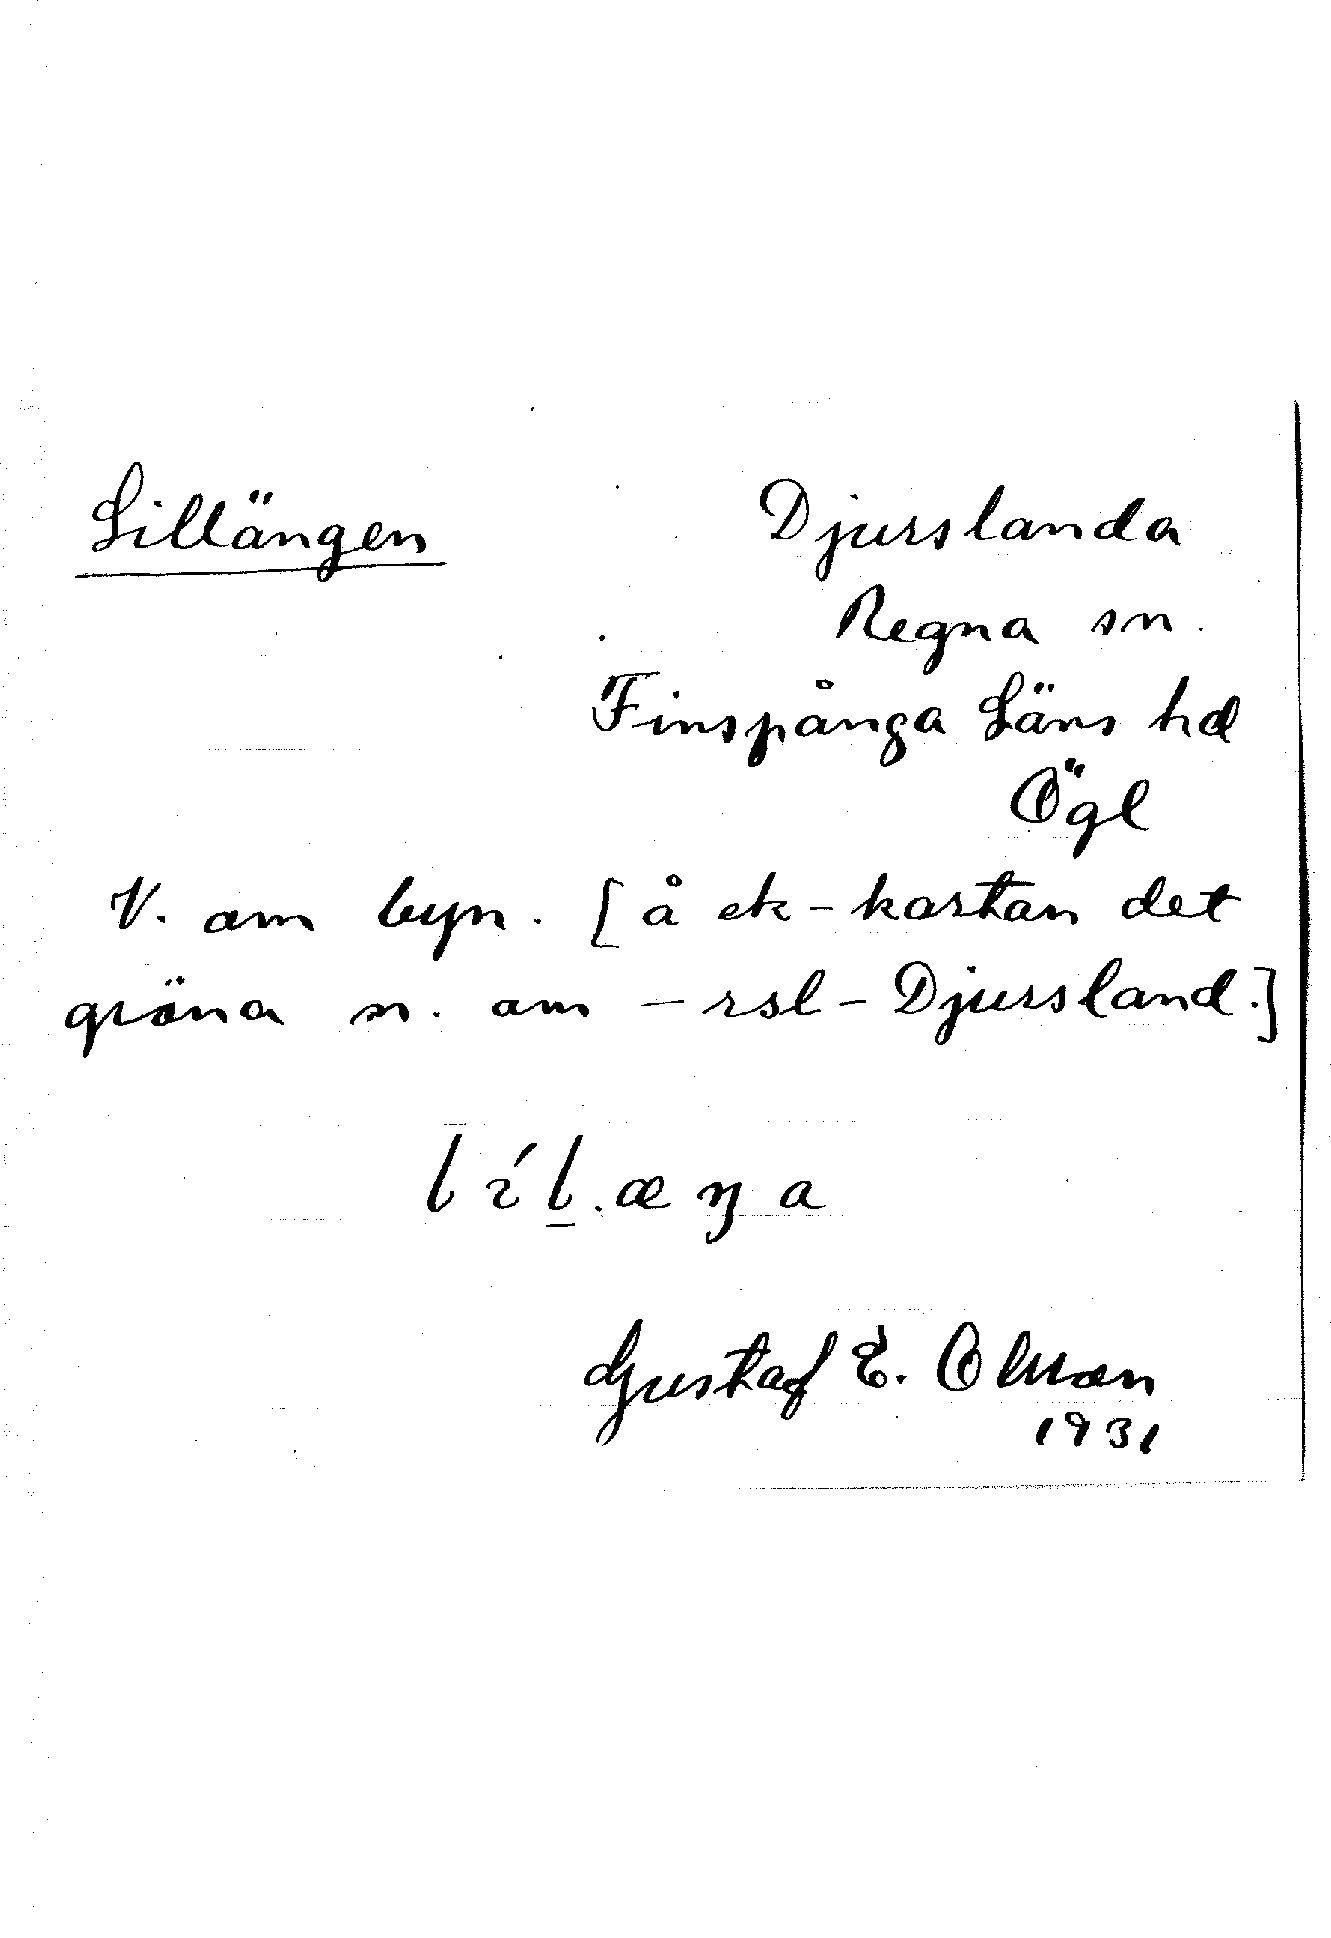 Lillängen
Djurslanda
Regna sn.
Finspånga Läns hd
Ögl
V. om byn. [å ek-kartan det
gröna n. om – rsl – Djursland.]
líl.æŋa
Gustaf E. Olsson
1931